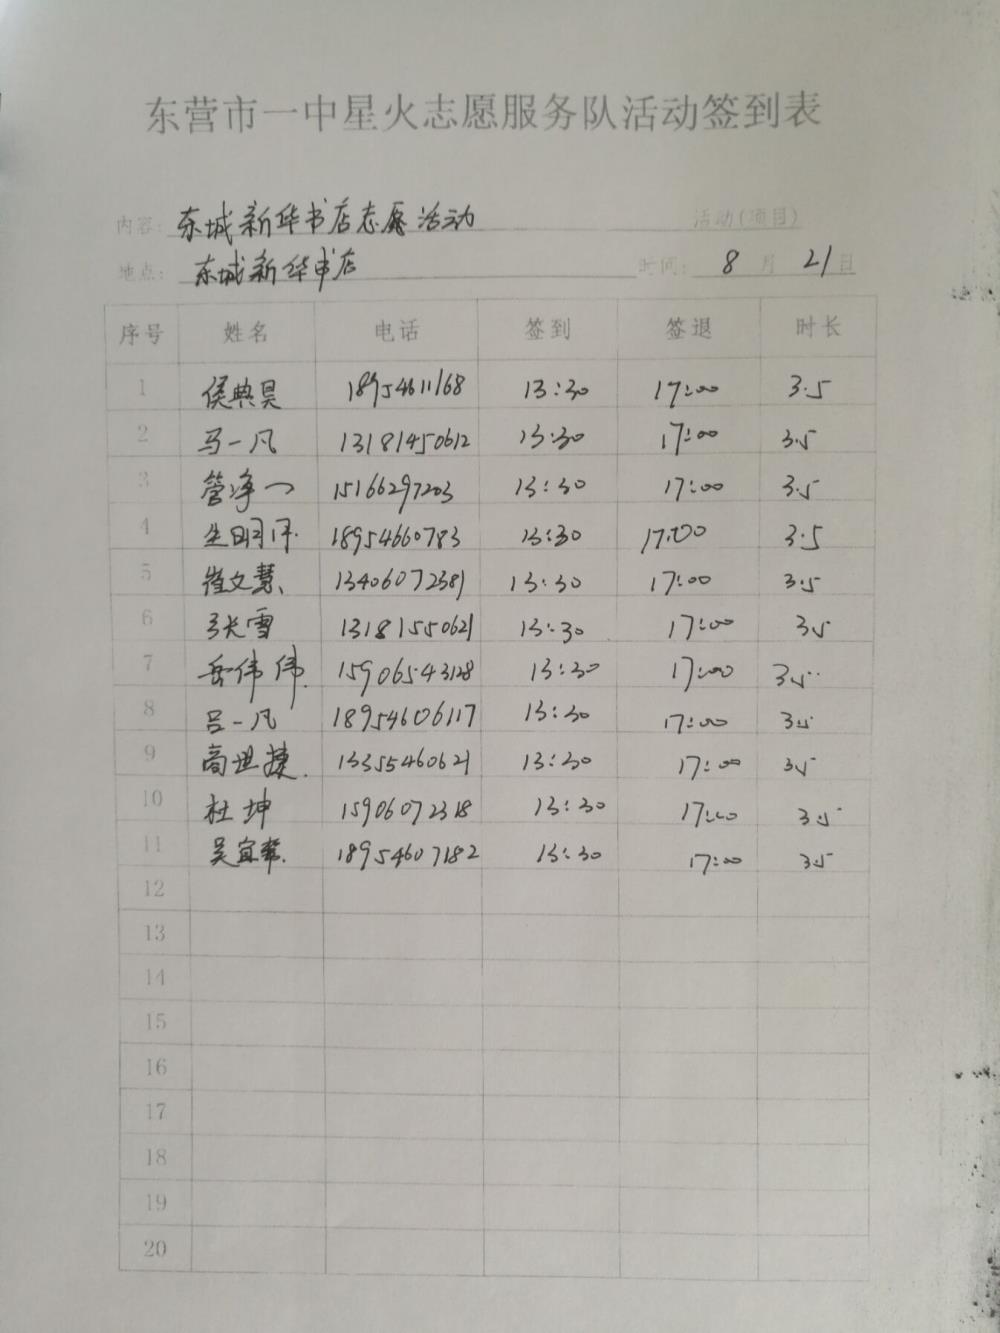 东营市一中星火志愿服务队活动签到表
内容: 东城新华书店志愿活动 活动(项目)
地点: 东城新华书店 时间: 8 月 21 日
序号 姓名 电话 签到 签退 时长
1 侯典昊 18954611168 13:30 17:00 3.5
2 马一凡 13181450612 13:30 17:00 3.5
3 管净一 15166297203 13:30 17:00 3.5
4 生明玥 18954660783 13:30 17:00 3.5
5 崔文慧 13406072381 13:30 17:00 3.5
6 张雪 13181550621 13:30 17:00 3.5
7 岳伟伟 15906543128 13:30 17:00 3.5
8 吕一凡 18954606117 13:30 17:00 3.5
9 高世捷 13355460621 13:30 17:00 3.5
10 杜坤 15906072318 13:30 17:00 3.5
11 吴宜 18954607182 13:30 17:00 3.5
12
13
14
15
16
17
18
19
20